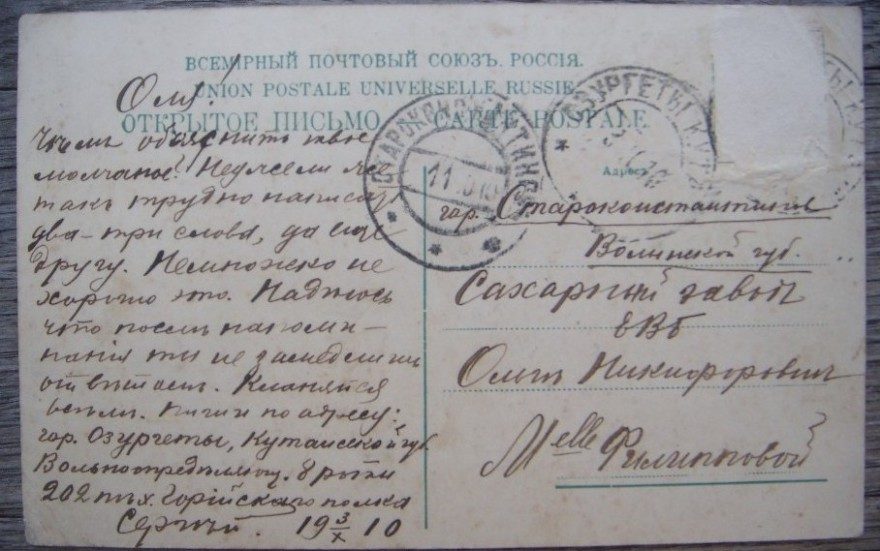 ВСЕМІРНЫЙ ПОЧТОВЫЙ СОЮЗЪ. РОССІЯ.
UNION POSTALE UNIVERSELLE RUSSIE.
ОТКРЫТОЕ ПИСЬМО. — CARTE POSTALE.
Оля!
Чѣмъ объяснить твое
молчаніе? Неужели
такъ трудно написать
два-три слова, да еще
другу. Немножко не
хорошо это. Надѣюсь
что послѣ напоми-
нанія ты не замедлишь
отвѣтомъ. Кланяйся
всѣмъ. Пиши по адресу:
гор. Озургеты, Кутаисской губ
Вольноопредѣляющ. 8 роты
202 пѣх. Горійскаго полка
Сергѣй. 19 3/X 10
СТАРОКОНСТАНТИНОВ
11
ОЗУРГЕТЫ КУТ
Адресъ
гор. Староконстантиновъ
Волынской губ.
Сахарный завод
ЕВБ
Ольгѣ Никифоровнѣ
Melle Филипповой